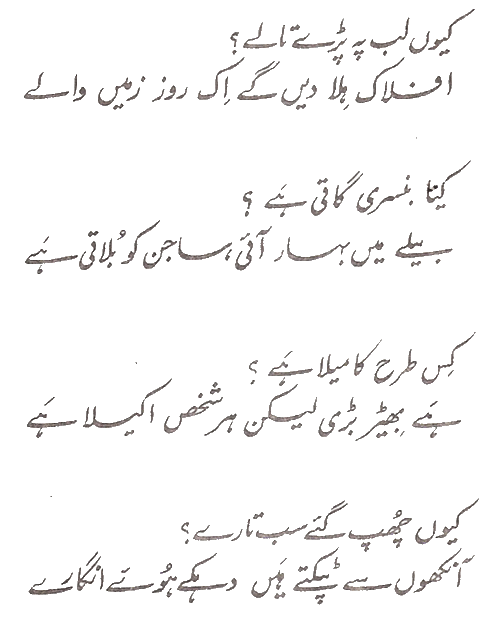 کیوں لب پہ پڑے تالے؟
افلاک ہِلا دیں گے اِک روز زمیں والے
کیا بنسری گاتی ہَے ؟
بیلے میں بہار آئی، ساجن کو بُلاتی ہَے
کِس طرح کا میلا ہَے ؟
ہَے بِھیڑ بڑی لیکن ہر شخص اکیلا ہَے
کیوں چُھپ گئے سب تارے؟
آنکھوں سے ٹپکتے ہَیں دہکے ہُوئے انگارے